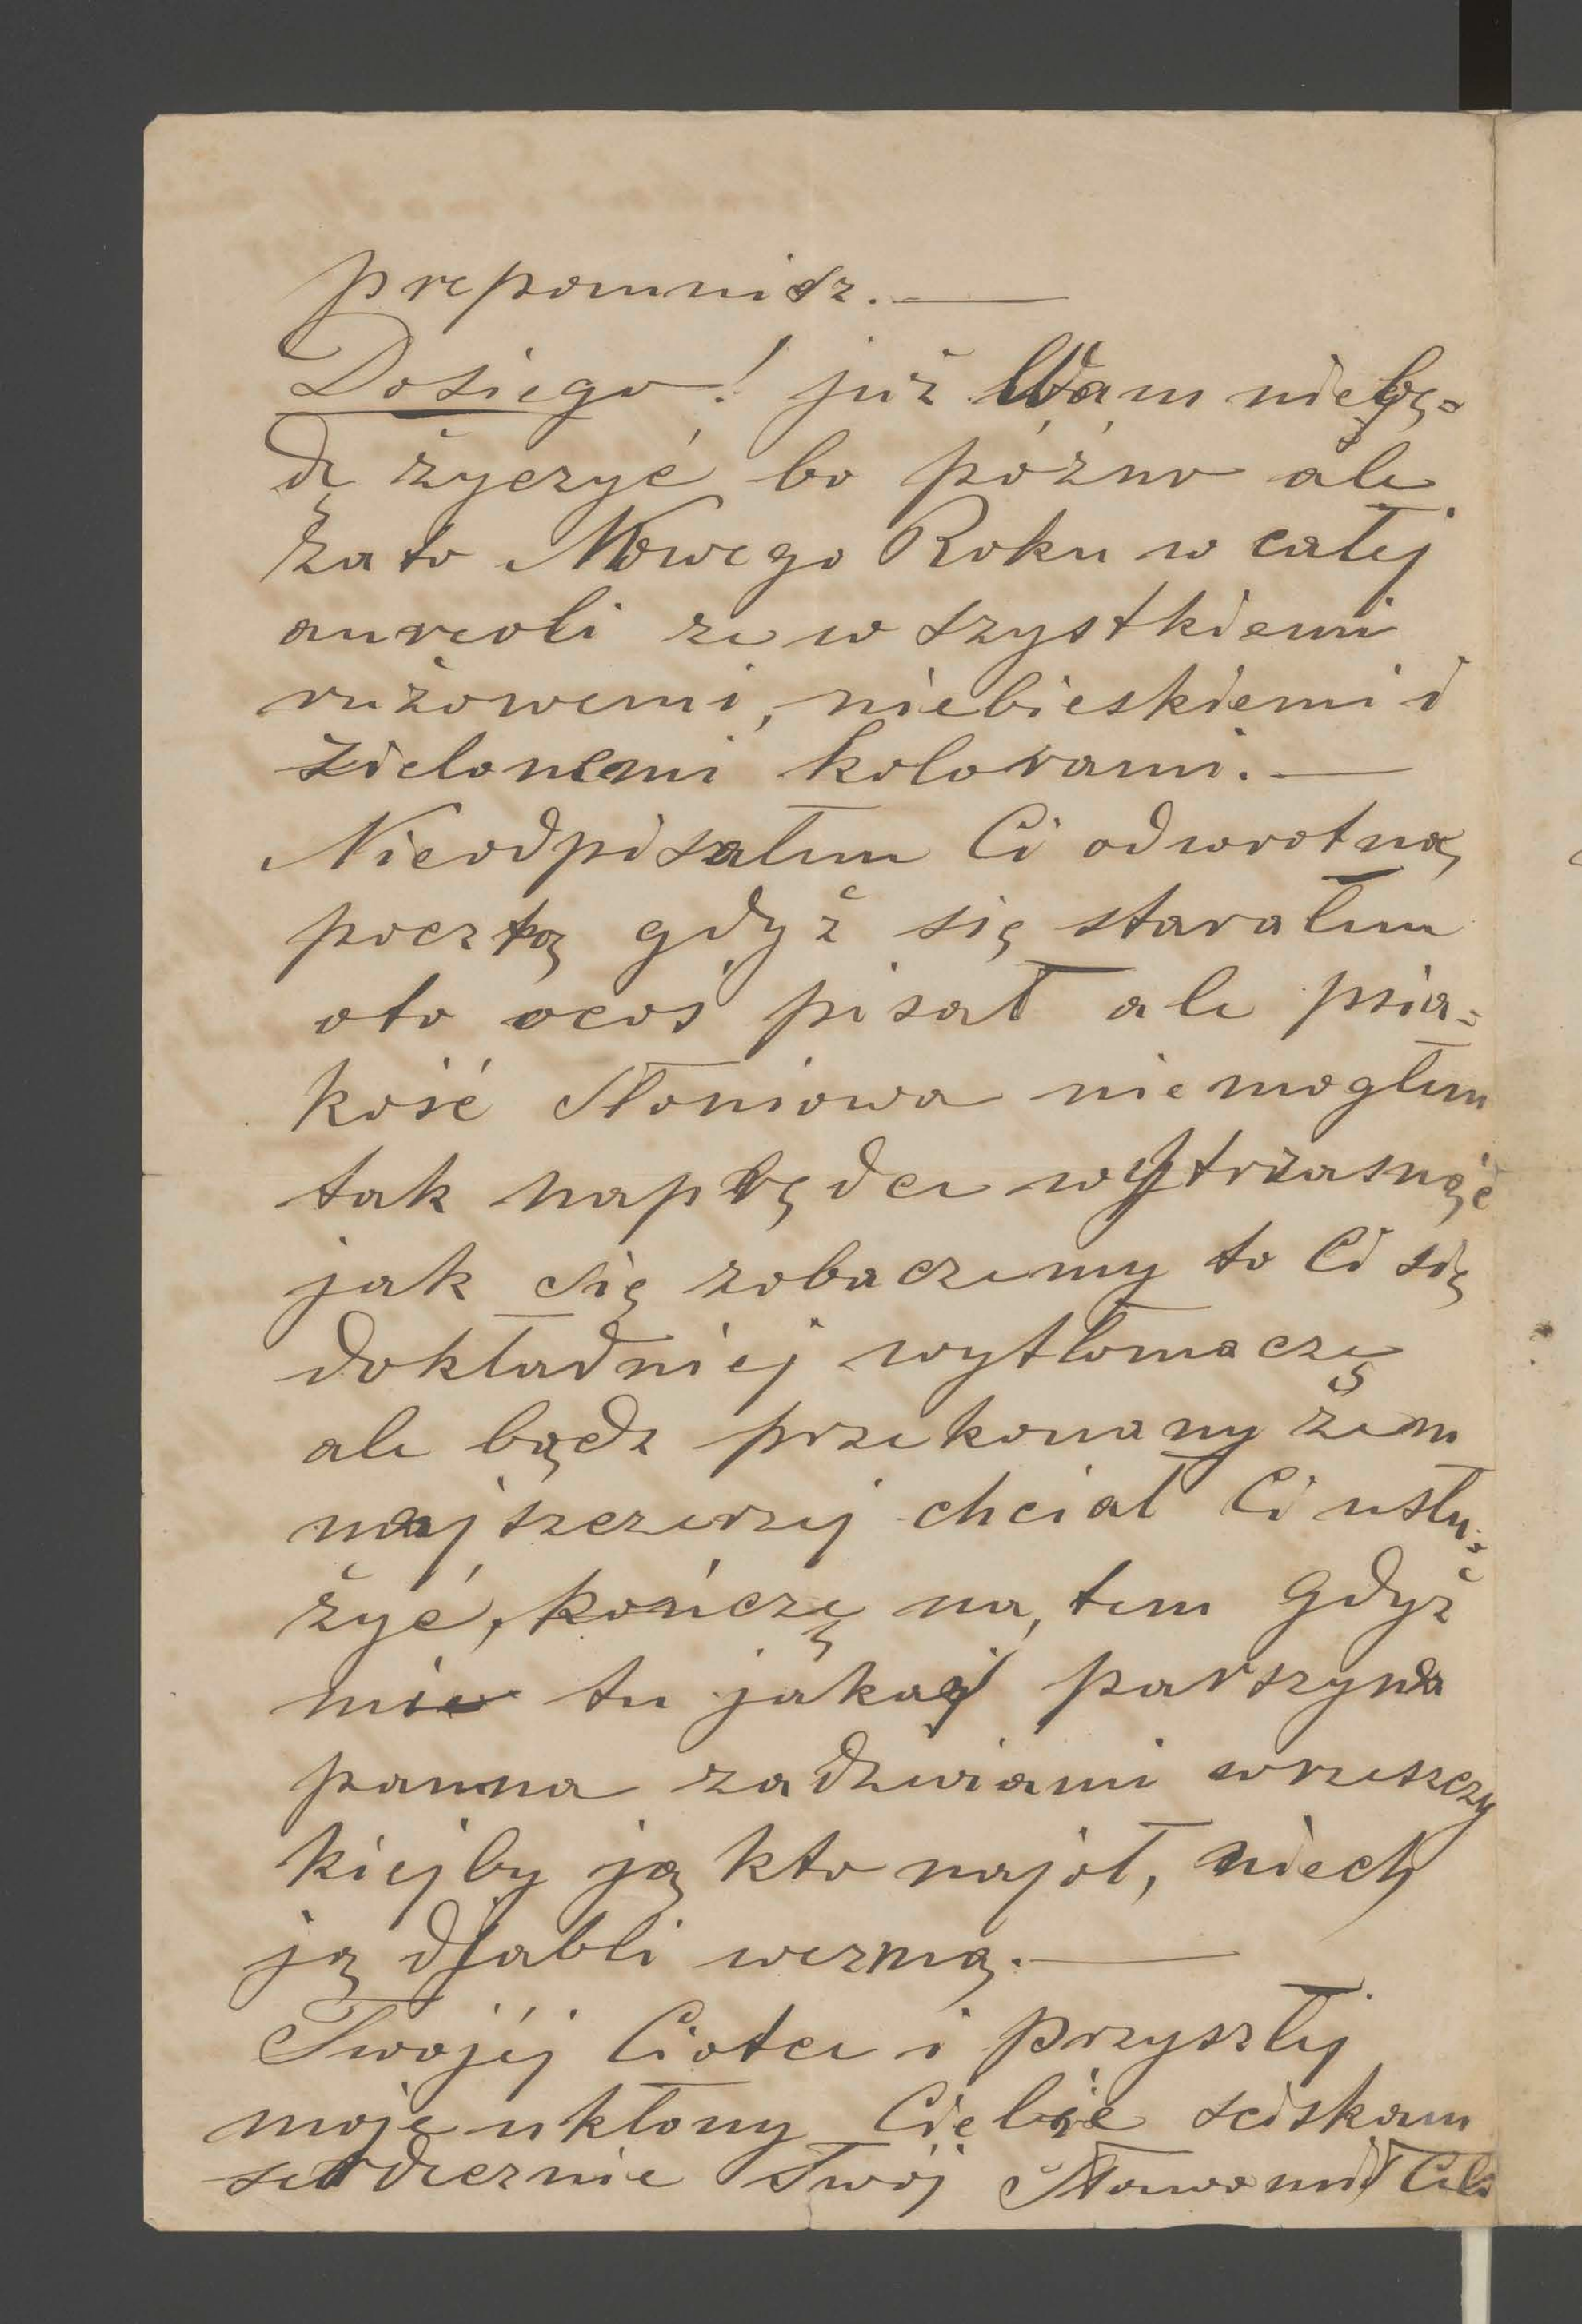 prepomnisz. —
Dosiego! już Wam niebę=
dę życzyć bo późno ale
zato Nowego Roku w całej
aureoli ze wszystkiemi
rużowemi, niebieskiemi i
zielonemi kolorami. —
Nieodpisałem Ci odwrotną
pocztą gdyż się starałem
oto ocoś pisał ale psia=
kość słoniowa niemogłem
tak naprędce wytrzasnąć
jak się zobaczemy to Ci się
dokładniej wytłomaczę
ale bądz przekonany żem
najszczerzej chciał Ci usłu=
żyć, kończę na tem gdyż
mie tu jakaś parszywa
panna zadzwiami wrzeszczy
kiejby ją kto najoł, niech
ją djabli wezmą. —
Twojéj Ciotce i przyszłej
moje ukłony Ciebie sciskam
serdecznie Twój